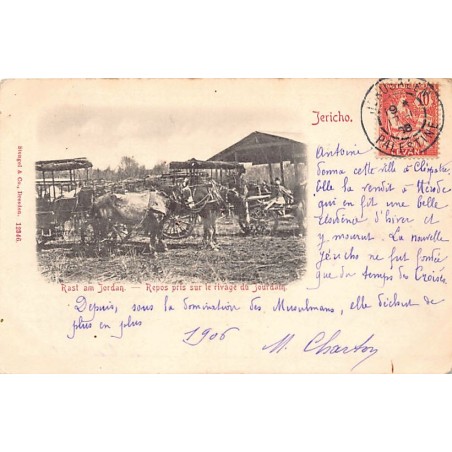 Jericho.
Stengel & Co., Dresden. 12846.
JERUSALEM
PALESTINE
10
Antoine
donna cette ville à Cléopatre,
Elle la rendit à Hérode
qui en fit une belle
résidence d'hiver et
y mourut. La nouvelle
Jéricho ne fut fondée
que du temps des Croisés
Rast am Jordan. — Repos pris sur le rivage du Jourdain.
Depuis, sous la domination des Musulmans, elle déchut de
plus en plus
1906 M. Charton